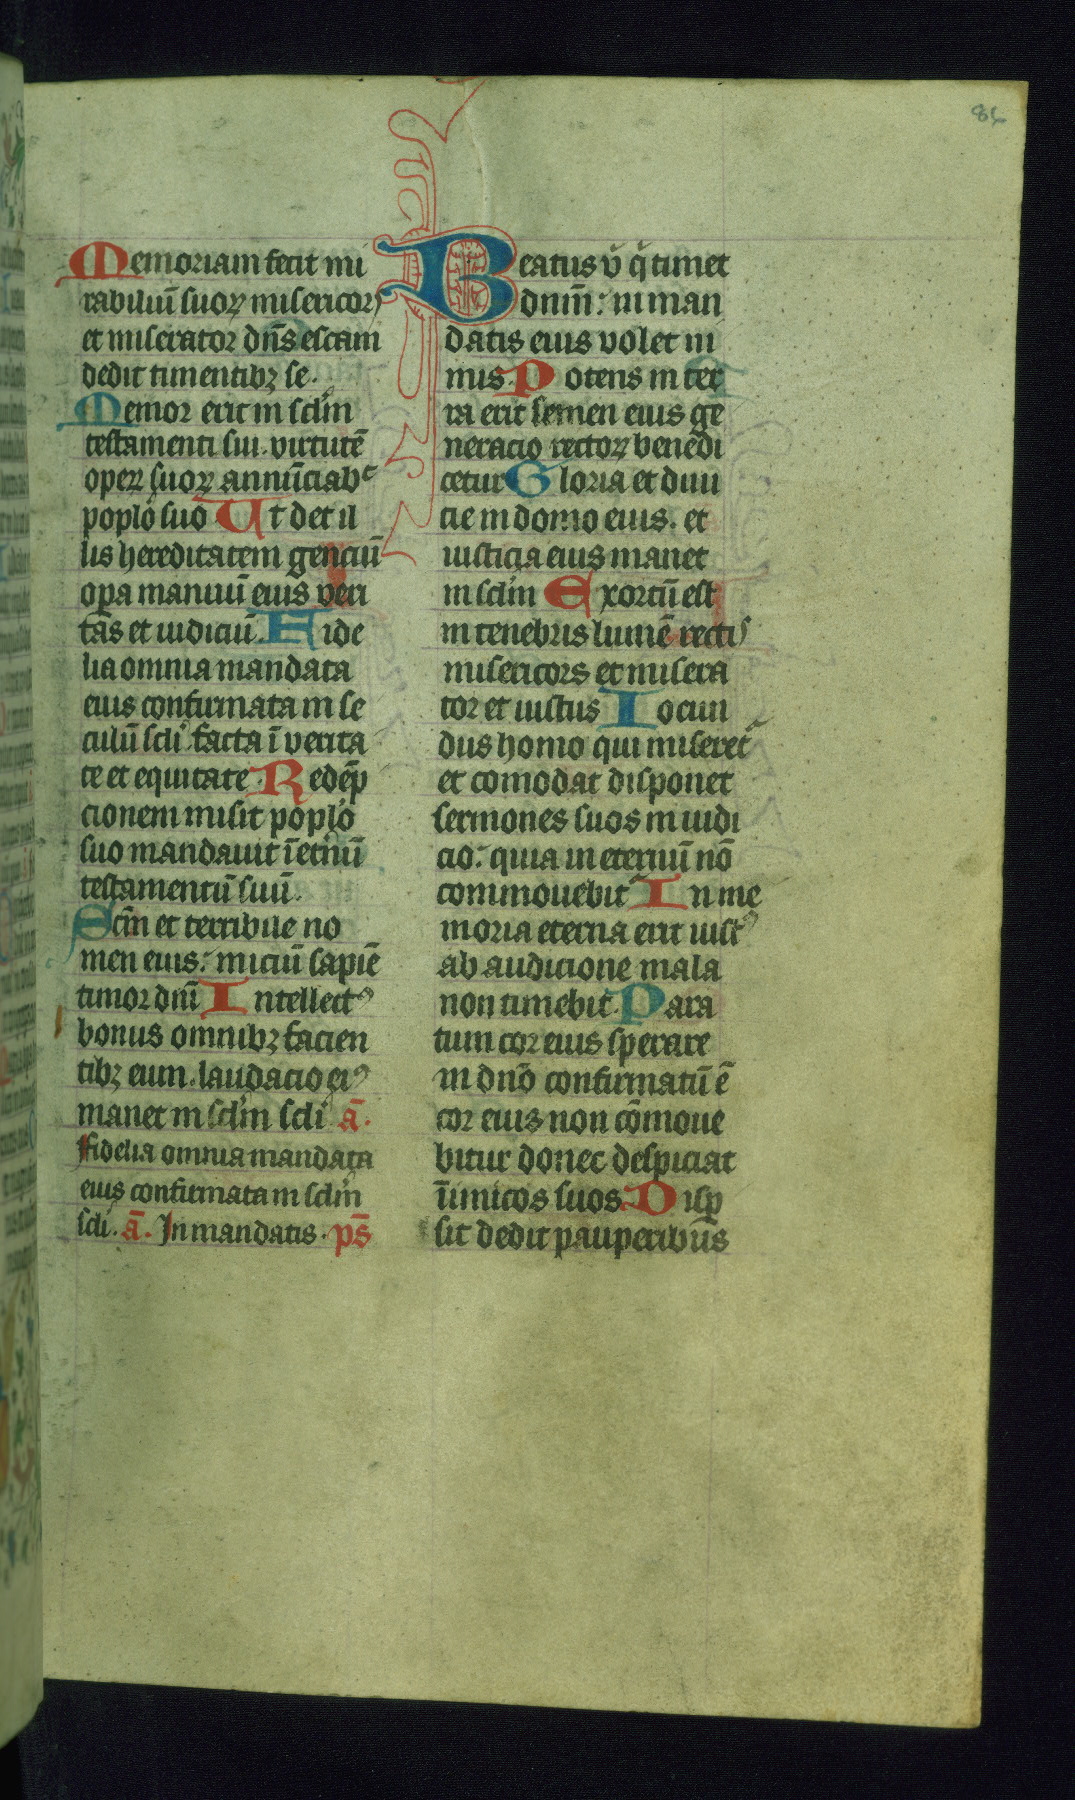 86
Memoriam fecit mi
rabiliū suoꝝ misericors
et miserator dn̄s escam
dedit timentibꝫ se.
Memor erit in sclm̄
testamenti sui. virtutē
operꝝ suoꝝ annūciabᵗ
poplo suo Ut det il
lis hereditatem genciū
opa manuū eius veri
tas et iudiciū. Fide
lia omnia mandata
eius confirmata in se
culū scli facta ī verita
te et equitate Redēp
cionem misit poplo
suo mandauit ī etnū
testamentū suū.
Scm̄ et terribile no
men eius: iniciū sapiē
timor dnī Intellectꝰ
bonus omnibꝫ facien
tibꝫ eum. laudacio eiꝰ
manet in sclm̄ scli ā.
Fidelia omnia mandata
eius confirmata in sclm̄
scli. ā. In mandatis. ps̄
Beatus v̊ q̇ timet
dnm̄: in man
datis eius volet ni
mis. Potens in ter
ra erit semen eius ge
neracio rectoꝝ benedi
cetur Gloria et diui
cie in domo eius. et
iusticia eius manet
in sclm̄ Exortū est
in tenebris lumē rectis
misericors et misera
tor et iustus Iocun
dus homo qui miseret᷑
et comodat disponet
sermones suos in iudi
cio: quia in eternū nō
commouebit᷑ In me
moria eterna erit iustꝰ
ab audicione mala
non timebit. Para
tum cor eius sperare
in dno confirmatū ē
cor eius non cōmoue
bitur donec despiciat
īimicos suos. Disp
sit dedit pauperibus